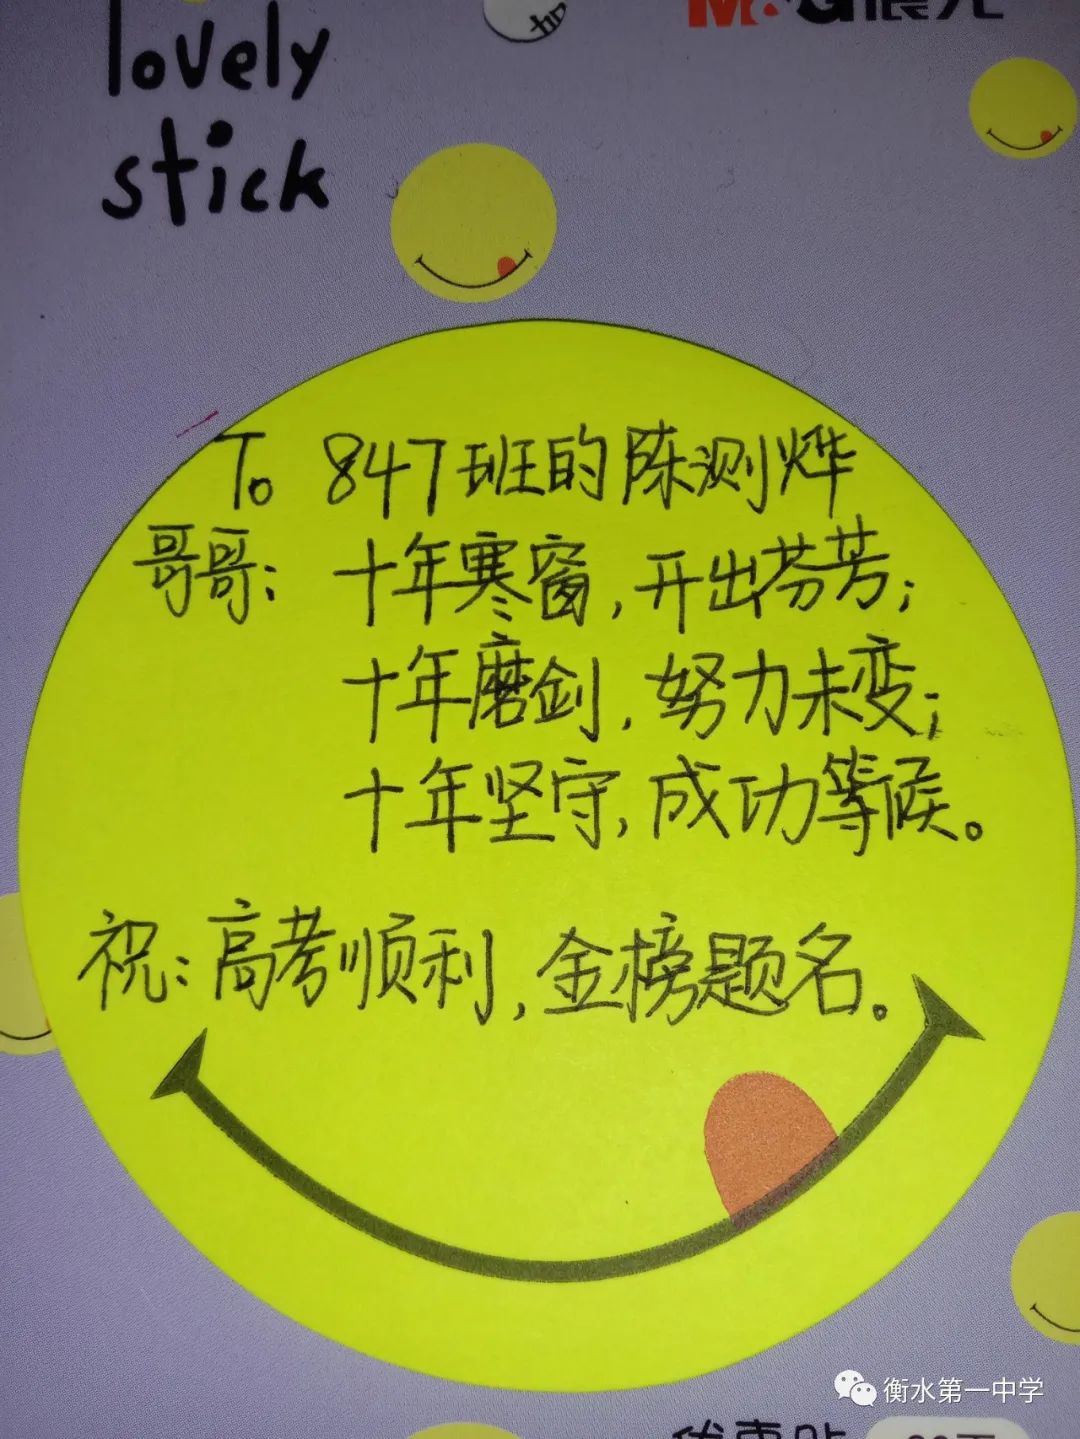 lovely
stick
M&G晨光
To 847班的陈测烨
哥哥: 十年寒窗,开出芬芳;
十年磨剑,努力未变;
十年坚守,成功等候。
祝:高考顺利,金榜题名。
衡水第一中学